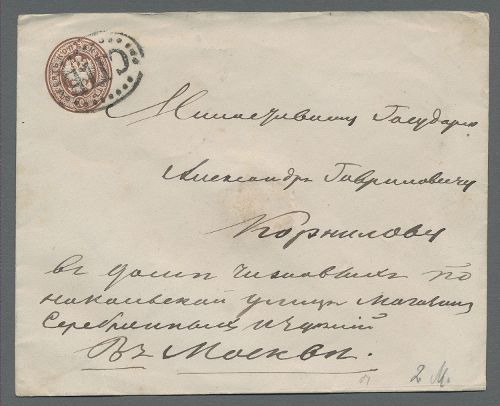 Милостивому Государю
Александру Гавриловичу
Корнилову
въ домѣ по
улицы Магазинъ
Серебрянныхъ
Въ Москвѣ.
2 М.